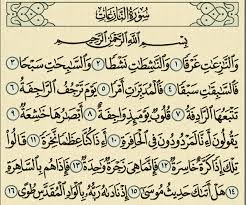 سُورَةُ النَّازِعَاتِ
بِسْمِ اللَّهِ الرَّحْمَٰنِ الرَّحِيمِ
وَالنَّٰزِعَٰتِ غَرْقًا ١ وَالنَّٰشِطَٰتِ نَشْطًا ٢ وَالسَّٰبِحَٰتِ سَبْحًا ٣
فَالسَّٰبِقَٰتِ سَبْقًا ٤ فَالْمُدَبِّرَٰتِ أَمْرًا ٥ يَوْمَ تَرْجُفُ الرَّاجِفَةُ ٦
تَتْبَعُهَا الرَّادِفَةُ ٧ قُلُوبٌ يَوْمَئِذٍ وَاجِفَةٌ ٨ أَبْصَٰرُهَا خَٰشِعَةٌ ٩
يَقُولُونَ أَءِنَّا لَمَرْدُودُونَ فِي الْحَافِرَةِ ١٠ أَءِذَا كُنَّا عِظَٰمًا نَّخِرَةً ١١ قَالُوا
تِلْكَ إِذًا كَرَّةٌ خَاسِرَةٌ ١٢ فَإِنَّمَا هِيَ زَجْرَةٌ وَٰحِدَةٌ ١٣ فَإِذَا هُم بِالسَّاهِرَةِ
١٤ هَلْ أَتَىٰكَ حَدِيثُ مُوسَىٰ ١٥ إِذْ نَادَىٰهُ رَبُّهُ بِالْوَادِ الْمُقَدَّسِ طُوًى ١٦